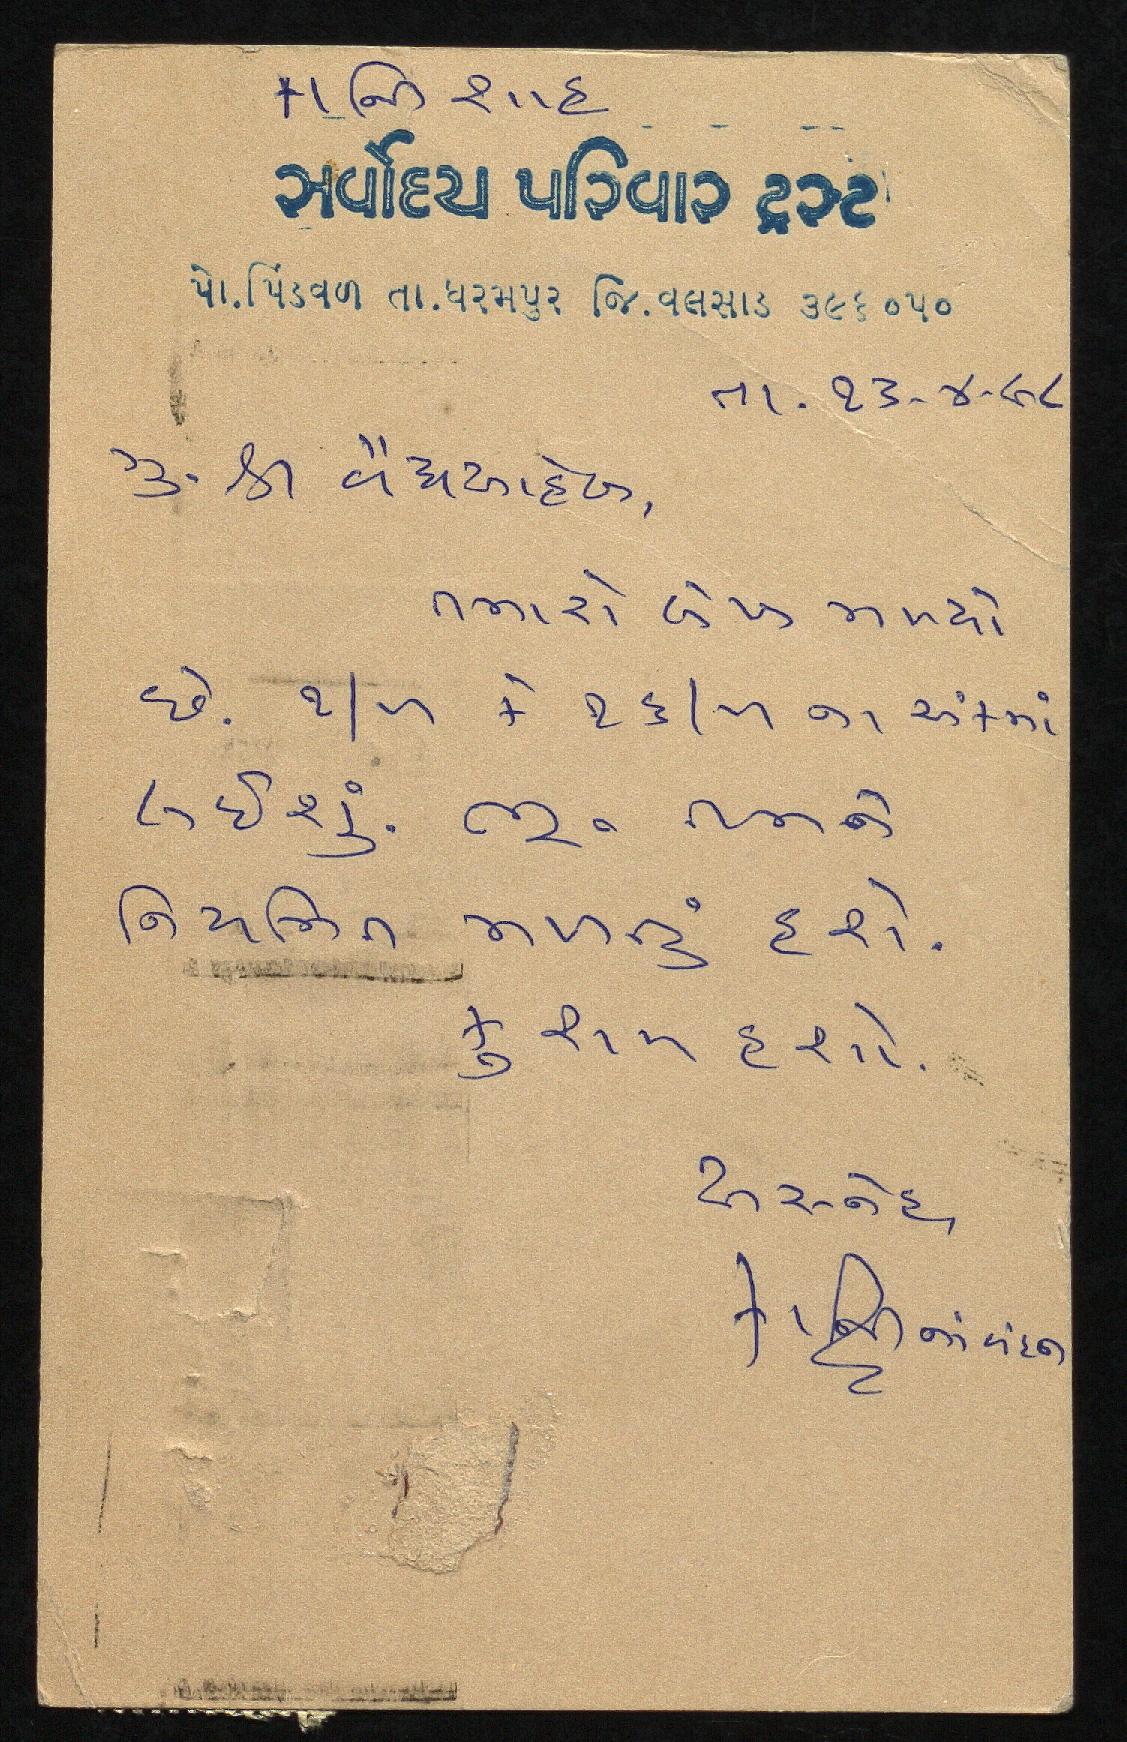 કાન્તિ શાહ
સર્વોદય પરિવાર ટ્રસ્ટ
પો.પિંડવળ તા.ધરમપુર જિ.વલસાડ ૩૯૬૦૫૦
તા. ૨૩-૪-૯૮
મુ. શ્રી વૈદ્યસાહેબ,
તમારો લેખ મળ્યો
છે. ૧/૫ કે ૧૬/૫ ના અંકમાં
લઈશું. ભૂ૦ તમને
નિયમિત મળતું હશે.
કુશળ હશો.
સસ્નેહ
કાન્તિનાં વંદન